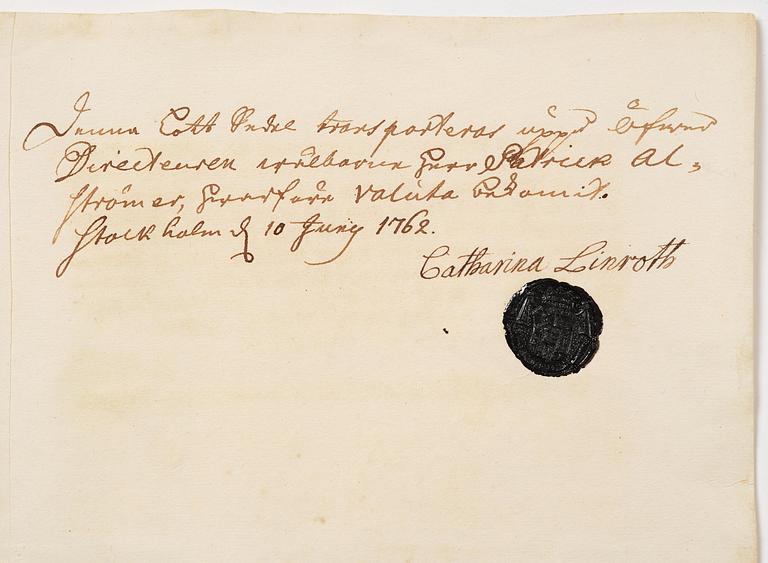 Denna Lott Sedel transporteras uppå öfwer
Directeuren wälborne Herr Patrick Al,
strömer, hwarföre Valuta bekommit.
Stockholm d 10 Juny 1762.
Catharina Linroth